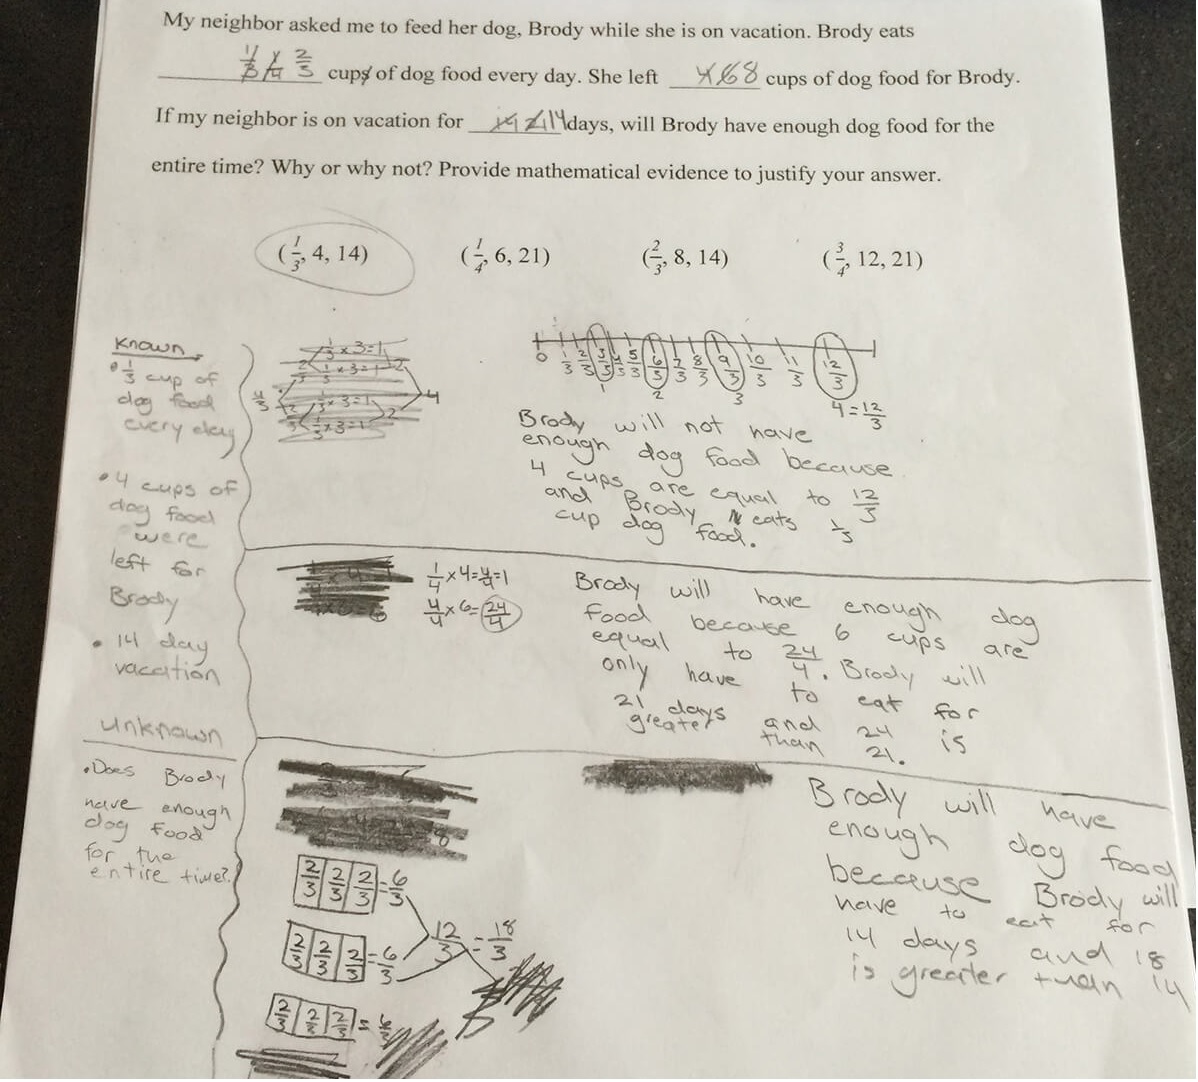 My neighbor asked me to feed her dog, Brody while she is on vacation. Brody eats
1/3 1/4 2/3 cups of dog food every day. She left 4 6 8 cups of dog food for Brody.
If my neighbor is on vacation for 14 21 14 days, will Brody have enough dog food for the
entire time? Why or why not? Provide mathematical evidence to justify your answer.
(1/3, 4, 14) (1/4, 6, 21) (2/3, 8, 14) (3/4, 12, 21)
Known
• 1/3 cup of
dog food
every day
• 4 cups of
dog food
were
left for
Brody
• 14 day
vacation
unknown
• Does Brody
have enough
dog food
for the
entire time?
1/3 x 3 = 1
1/3 x 3 = 1
1/3 x 3 = 1
1/3 x 3 = 1
2 2 4
0 1/3 2/3 3/3 4/3 5/3 6/3 7/3 8/3 9/3 10/3 11/3 12/3
1 2 3 4 = 12/3
Brody will not have
enough dog food because
4 cups are equal to 12/3
and Brody eats 1/3
cup dog food.
1/4 x 4 = 4/4 = 1
4/4 x 6 = 24/4
Brody will have enough dog
food because 6 cups are
equal to 24/4. Brody will
only have to eat for
21 days and 24 is
greater than 21.
2/3 2/3 2/3 = 6/3
2/3 2/3 2/3 = 6/3
12/3 = 18/3
2/3 2/3 2/3 = 6/3
Brody will have
enough dog food
because Brody will
have to eat for
14 days and 18
is greater than 14